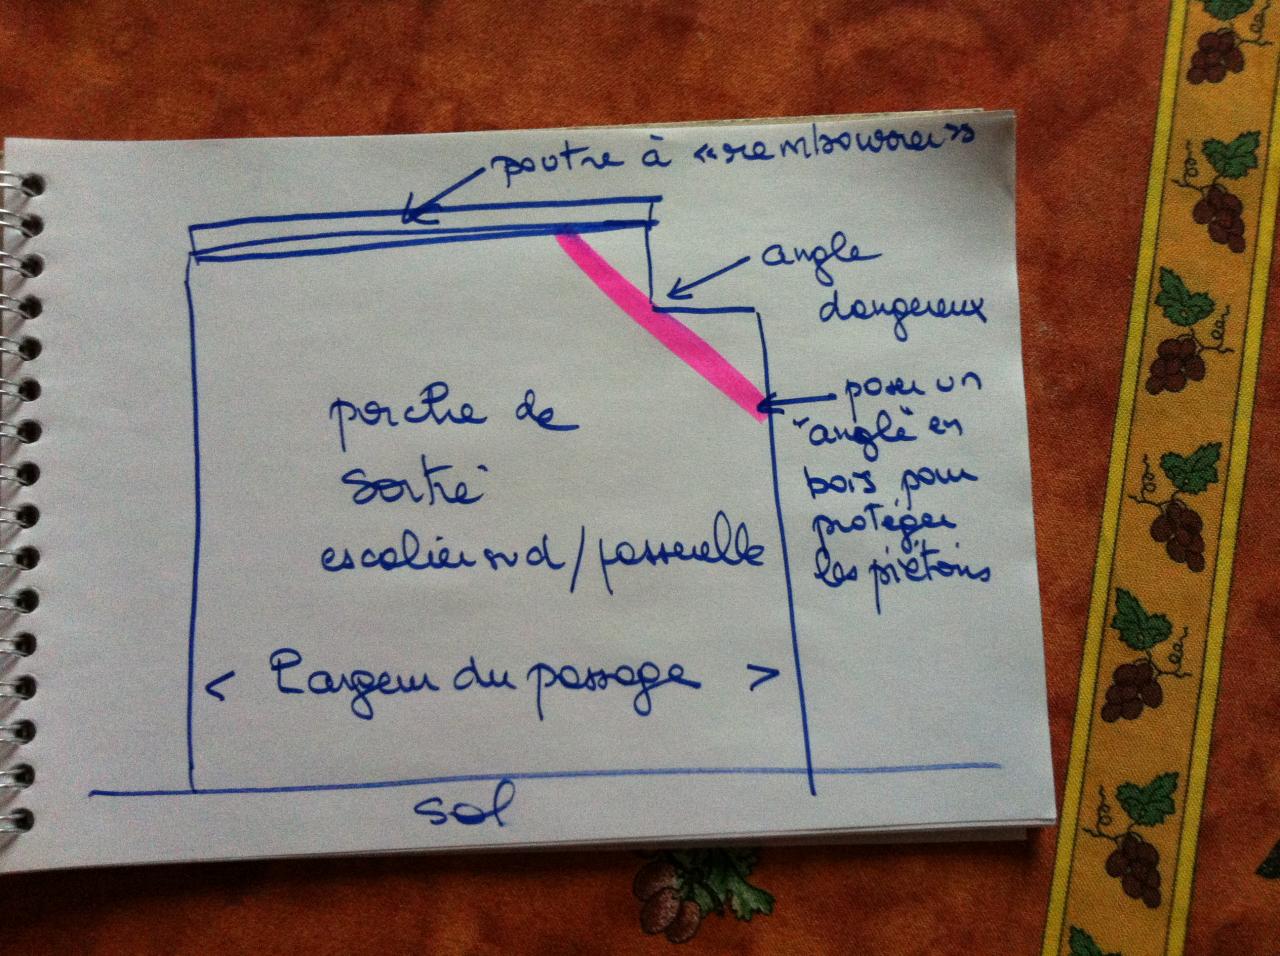 poutre à «rembourrer»
angle
dangereux
poser un
"angle" en
bois pour
protéger
les piétons
porche de
sortie
escalier sud/passerelle
< Largeur du passage >
sol